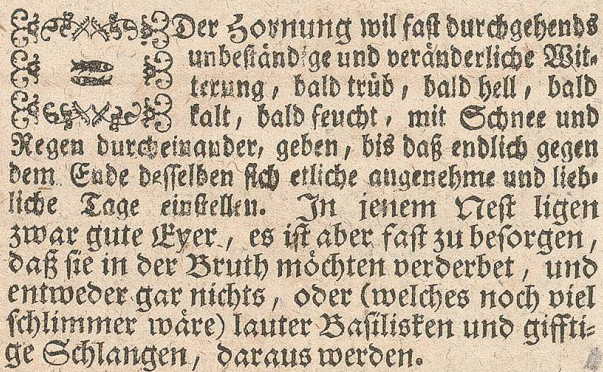 Der Hornung wil fast durchgehends
unbeständige und veränderliche Wit-
terung, bald trüb, bald hell, bald
kalt, bald feucht, mit Schnee und
Regen durcheinander, geben, bis daß endlich gegen
dem Ende desselben sich etliche angenehme und lieb-
liche Tage einstellen. In jenem Nest ligen
zwar gute Eyer, es ist aber fast zu besorgen,
daß sie in der Bruth möchten verderbet, und
entweder gar nichts, oder (welches noch viel
schlimmer wäre) lauter Basilisken und giffti-
ge Schlangen, daraus werden.